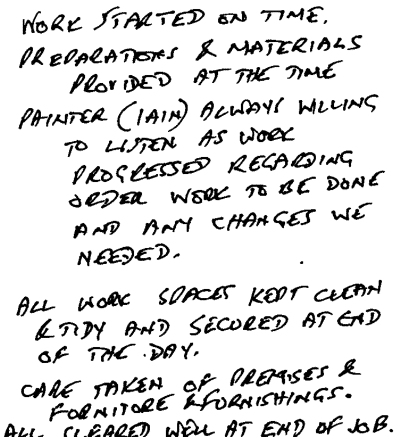 WORK STARTED ON TIME.
PREPARATIONS & MATERIALS
PROVIDED AT THE TIME
PAINTER (IAIN) ALWAYS WILLING
TO LISTEN AS WORK
PROGRESSED REGARDING
ORDER WORK TO BE DONE
AND ANY CHANGES WE
NEEDED.
ALL WORK SPACES KEPT CLEAN
& TIDY AND SECURED AT END
OF THE DAY.
CARE TAKEN OF PREMISES &
FORNITORE & FURNISHINGS.
ALL CLEARED WELL AT END OF JOB.